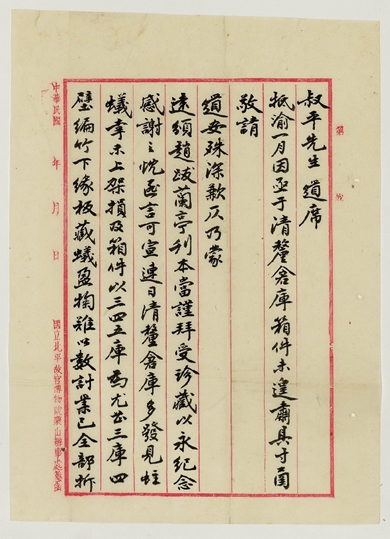 第
叔平先生 道席
抵渝一月因亟于清釐倉庫箱件未遑肅具寸函
敬請
道安殊深歉仄乃蒙
遠頒趙跋蘭亭刊本當謹拜受珍藏以永紀念
感謝之忱匪言可宣連日清釐倉庫多發見蛀
蟻幸未上架損及箱件以三四五庫為尤甚三庫四
壁編竹下緣板藏蟻盈掬難以數計業已全部拆
中華民國 年 月 日 國立北平故宮博物院樂山辦事處